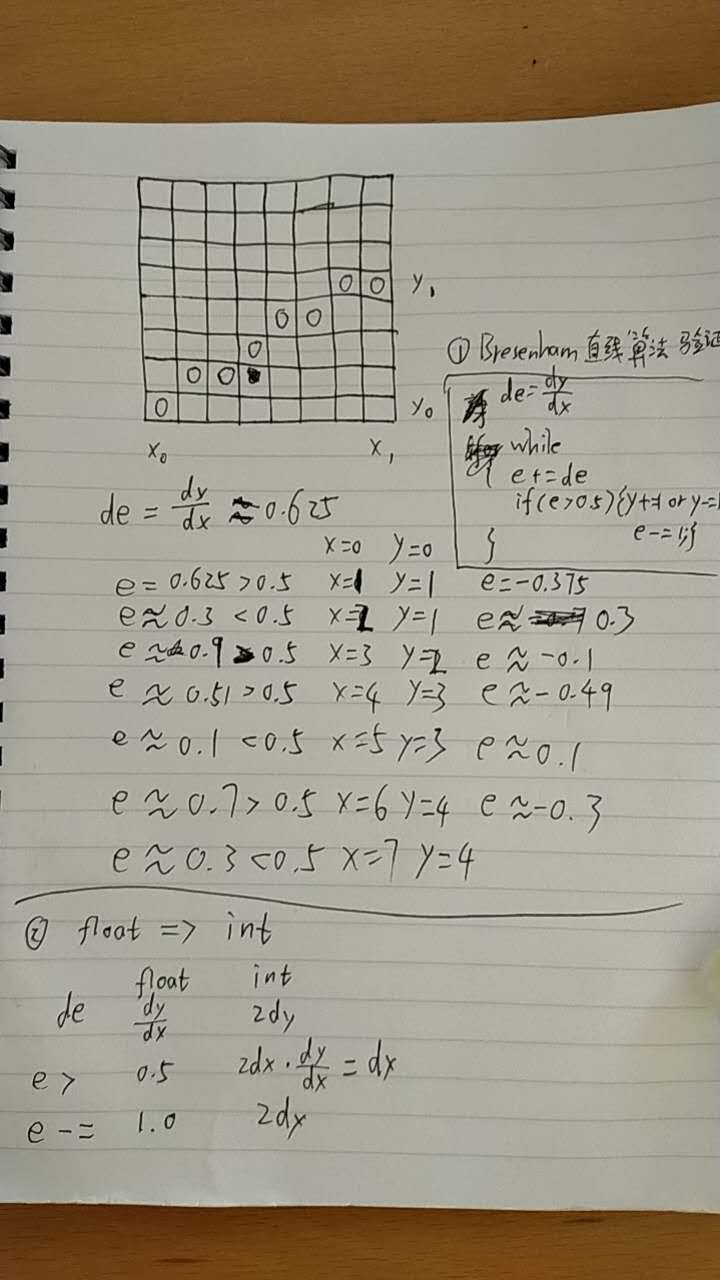 y₁
① Bresenham 直线算法 验证
y₀
x₀ x₁
de = dy/dx
while
{ e += de
if(e>0.5){y+=1 or y-=1
e -= 1;}
}
de = dy/dx ≈ 0.625
x=0 y=0
e = 0.625 > 0.5 x=1 y=1 e=-0.375
e ≈ 0.3 < 0.5 x=2 y=1 e ≈ 0.3
e ≈ 0.9 > 0.5 x=3 y=2 e ≈ -0.1
e ≈ 0.51 > 0.5 x=4 y=3 e ≈ -0.49
e ≈ 0.1 < 0.5 x=5 y=3 e ≈ 0.1
e ≈ 0.7 > 0.5 x=6 y=4 e ≈ -0.3
e ≈ 0.3 < 0.5 x=7 y=4
② float => int
float int
de dy/dx 2dy
e > 0.5 2dx · dy/dx = dx
e -= 1.0 2dx